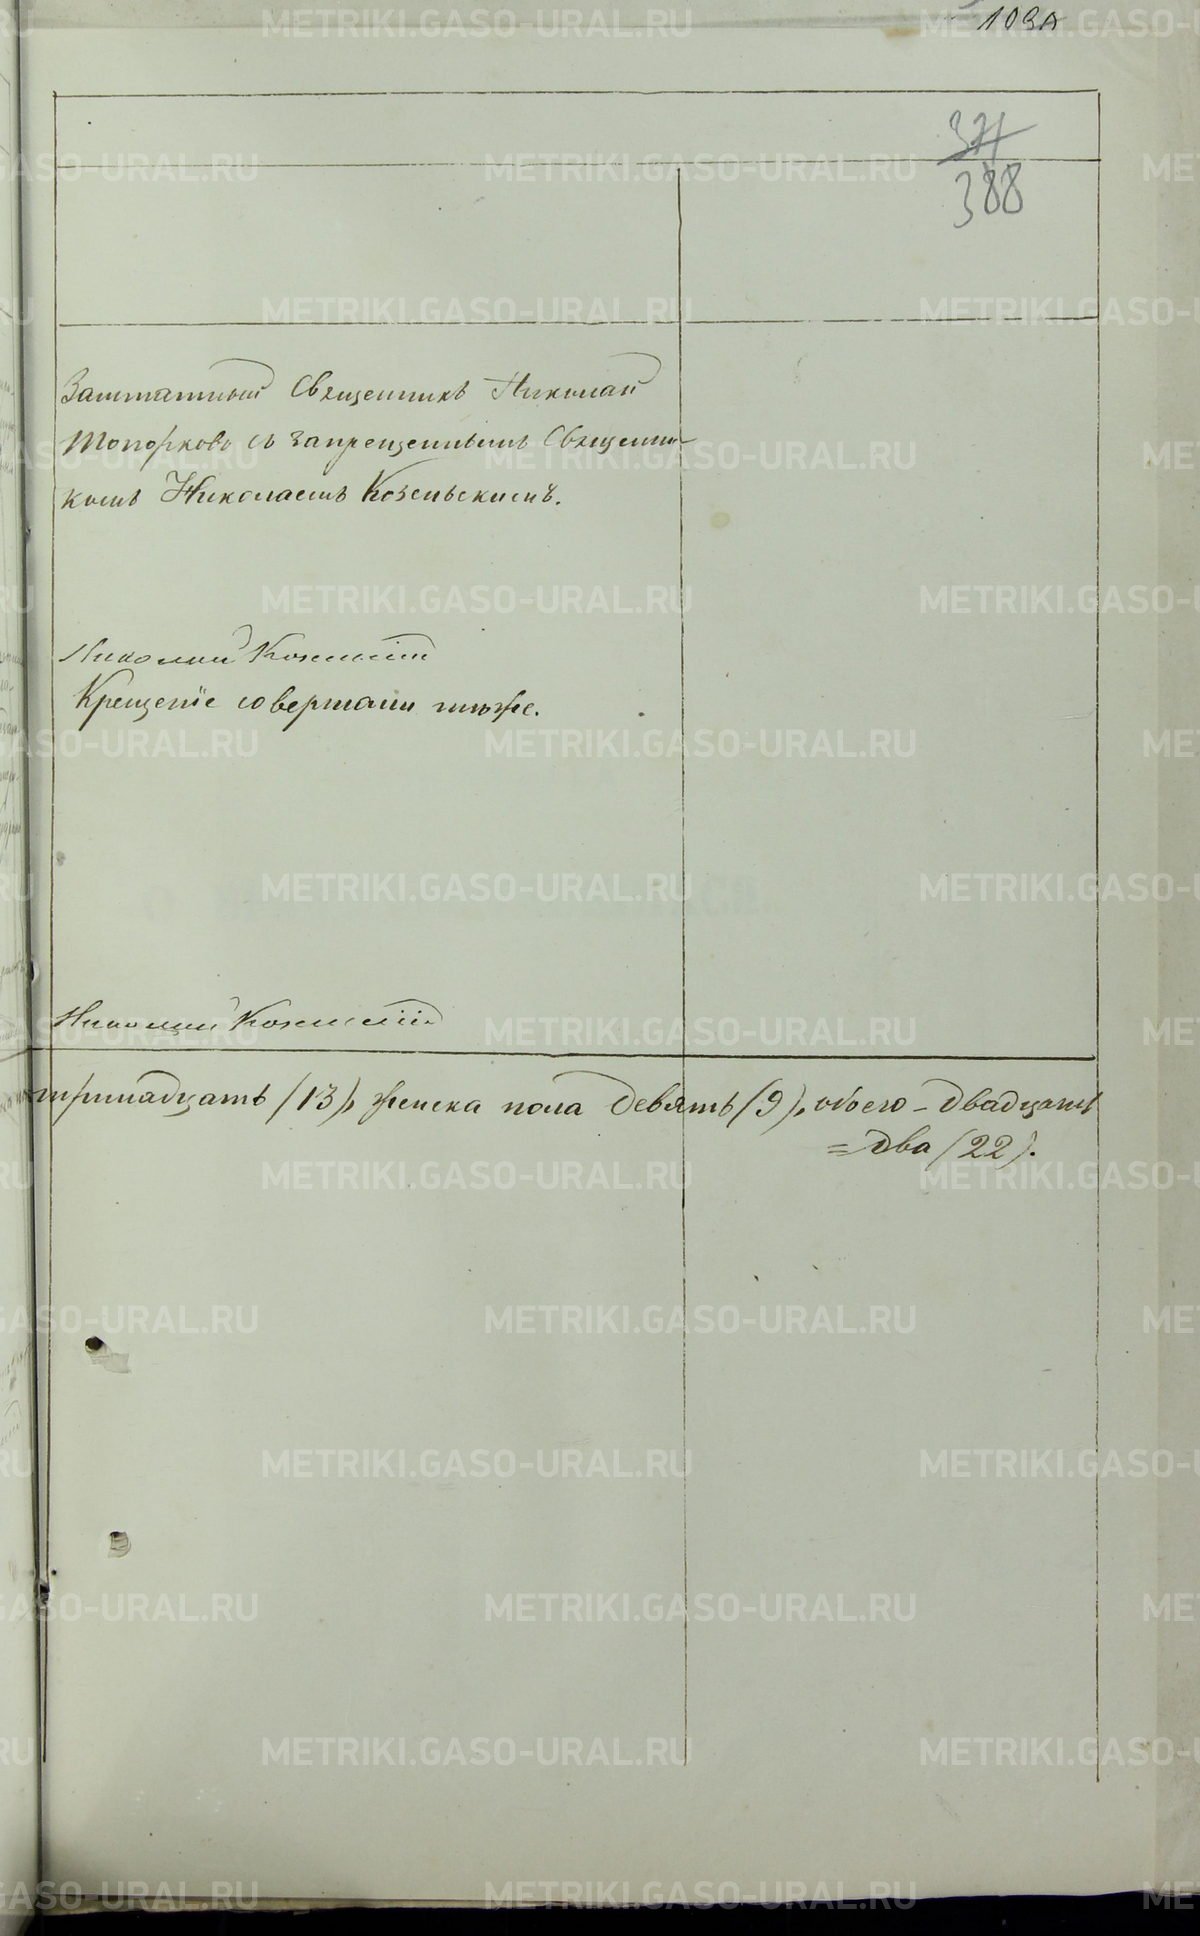 109А
374
388
Заштатный Священникъ Николай
Топорковъ съ запрещеннымъ Священни-
комъ Николаемъ Козельскимъ.
Николай
Крещеніе совершали тѣже.
Николай
тринадцать (13), женска пола девять (9), обоего - двадцать
= два (22).
METRIKI.GASO-URAL.RU